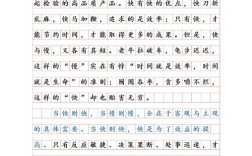 起检验的高品质产品。快有快的优点，快刀斩
乱麻、快马加鞭，追求的是效率；只有快，才
能节约时间，才能取得更多的成果。但是，快
与慢，又各有其短。老牛拉破车、龟步迟迟，
这样的“慢”实在有悖“时间就是效率，时间
就是生命”的准则；囫囵吞枣、贪多嚼不烂，
这样的“快”却也贻害无穷。
当快则快，当慢则慢，全在于客观与主观
的具体需要。当快则快，快是为了效益的提
高。只有反应敏捷、决策果断、处事迅速，才